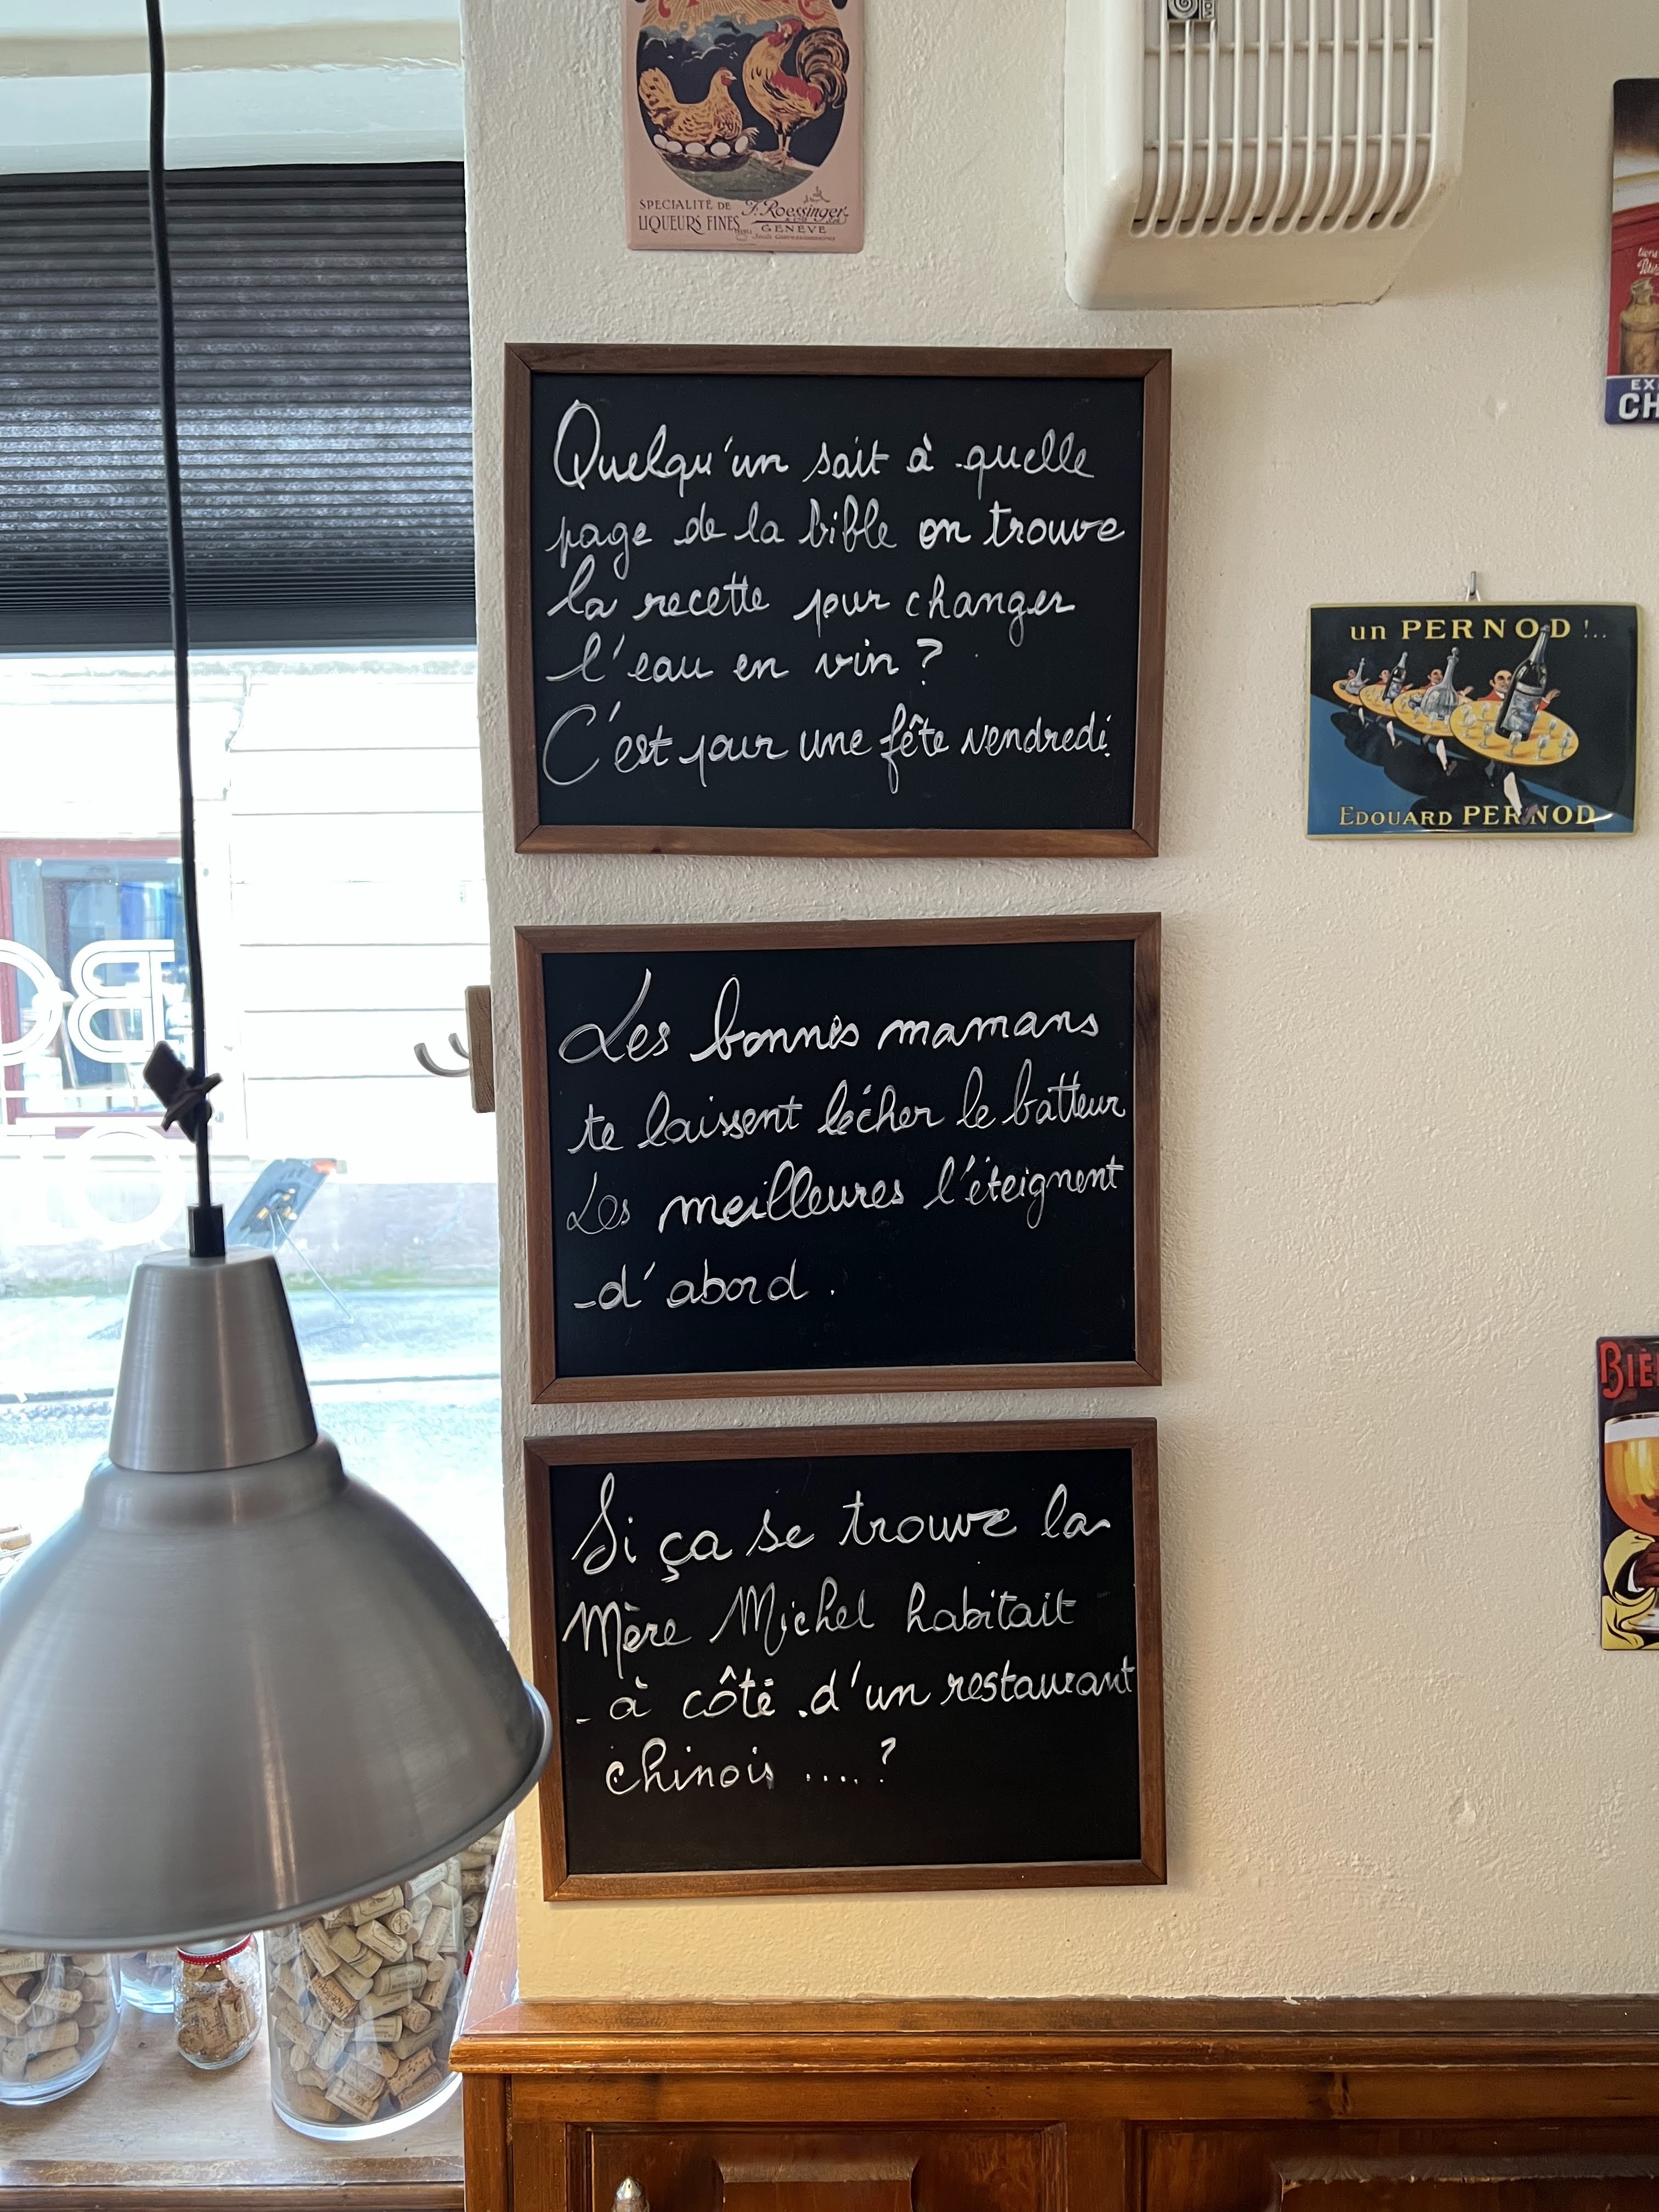 SPECIALITÉ DE
LIQUEURS FINES
F. Roessinger
GENÈVE
Quelqu'un sait à quelle
page de la bible on trouve
la recette pour changer
l'eau en vin ?
C'est pour une fête vendredi
un PERNOD !..
EDOUARD PERNOD
Les bonnes mamans
te laissent lécher le batteur
Les meilleures l'éteignent
d'abord.
Si ça se trouve la
Mère Michel habitait
à côté d'un restaurant
chinois ....?